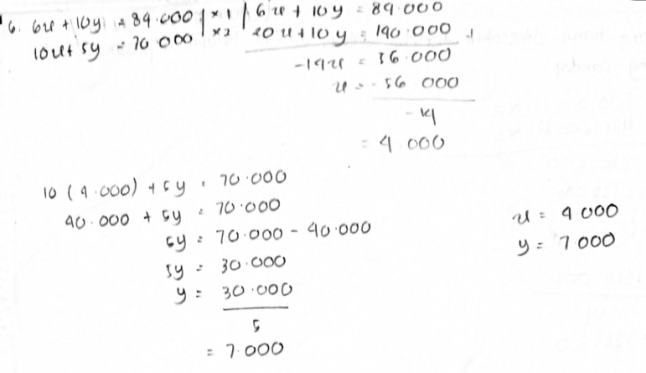 16. 6x + 10y = 84.000 | x1 | 6x + 10y = 84.000
10x + 5y = 70 000 | x2 | 20x + 10y = 140.000 -
-14x = 56.000
x = -56 000
-14
= 4.000
10 (4.000) + 5y = 70.000
40.000 + 5y = 70.000
5y = 70.000 - 40.000
5y = 30.000
y = 30.000
5
= 7.000
x = 4 000
y = 7 000